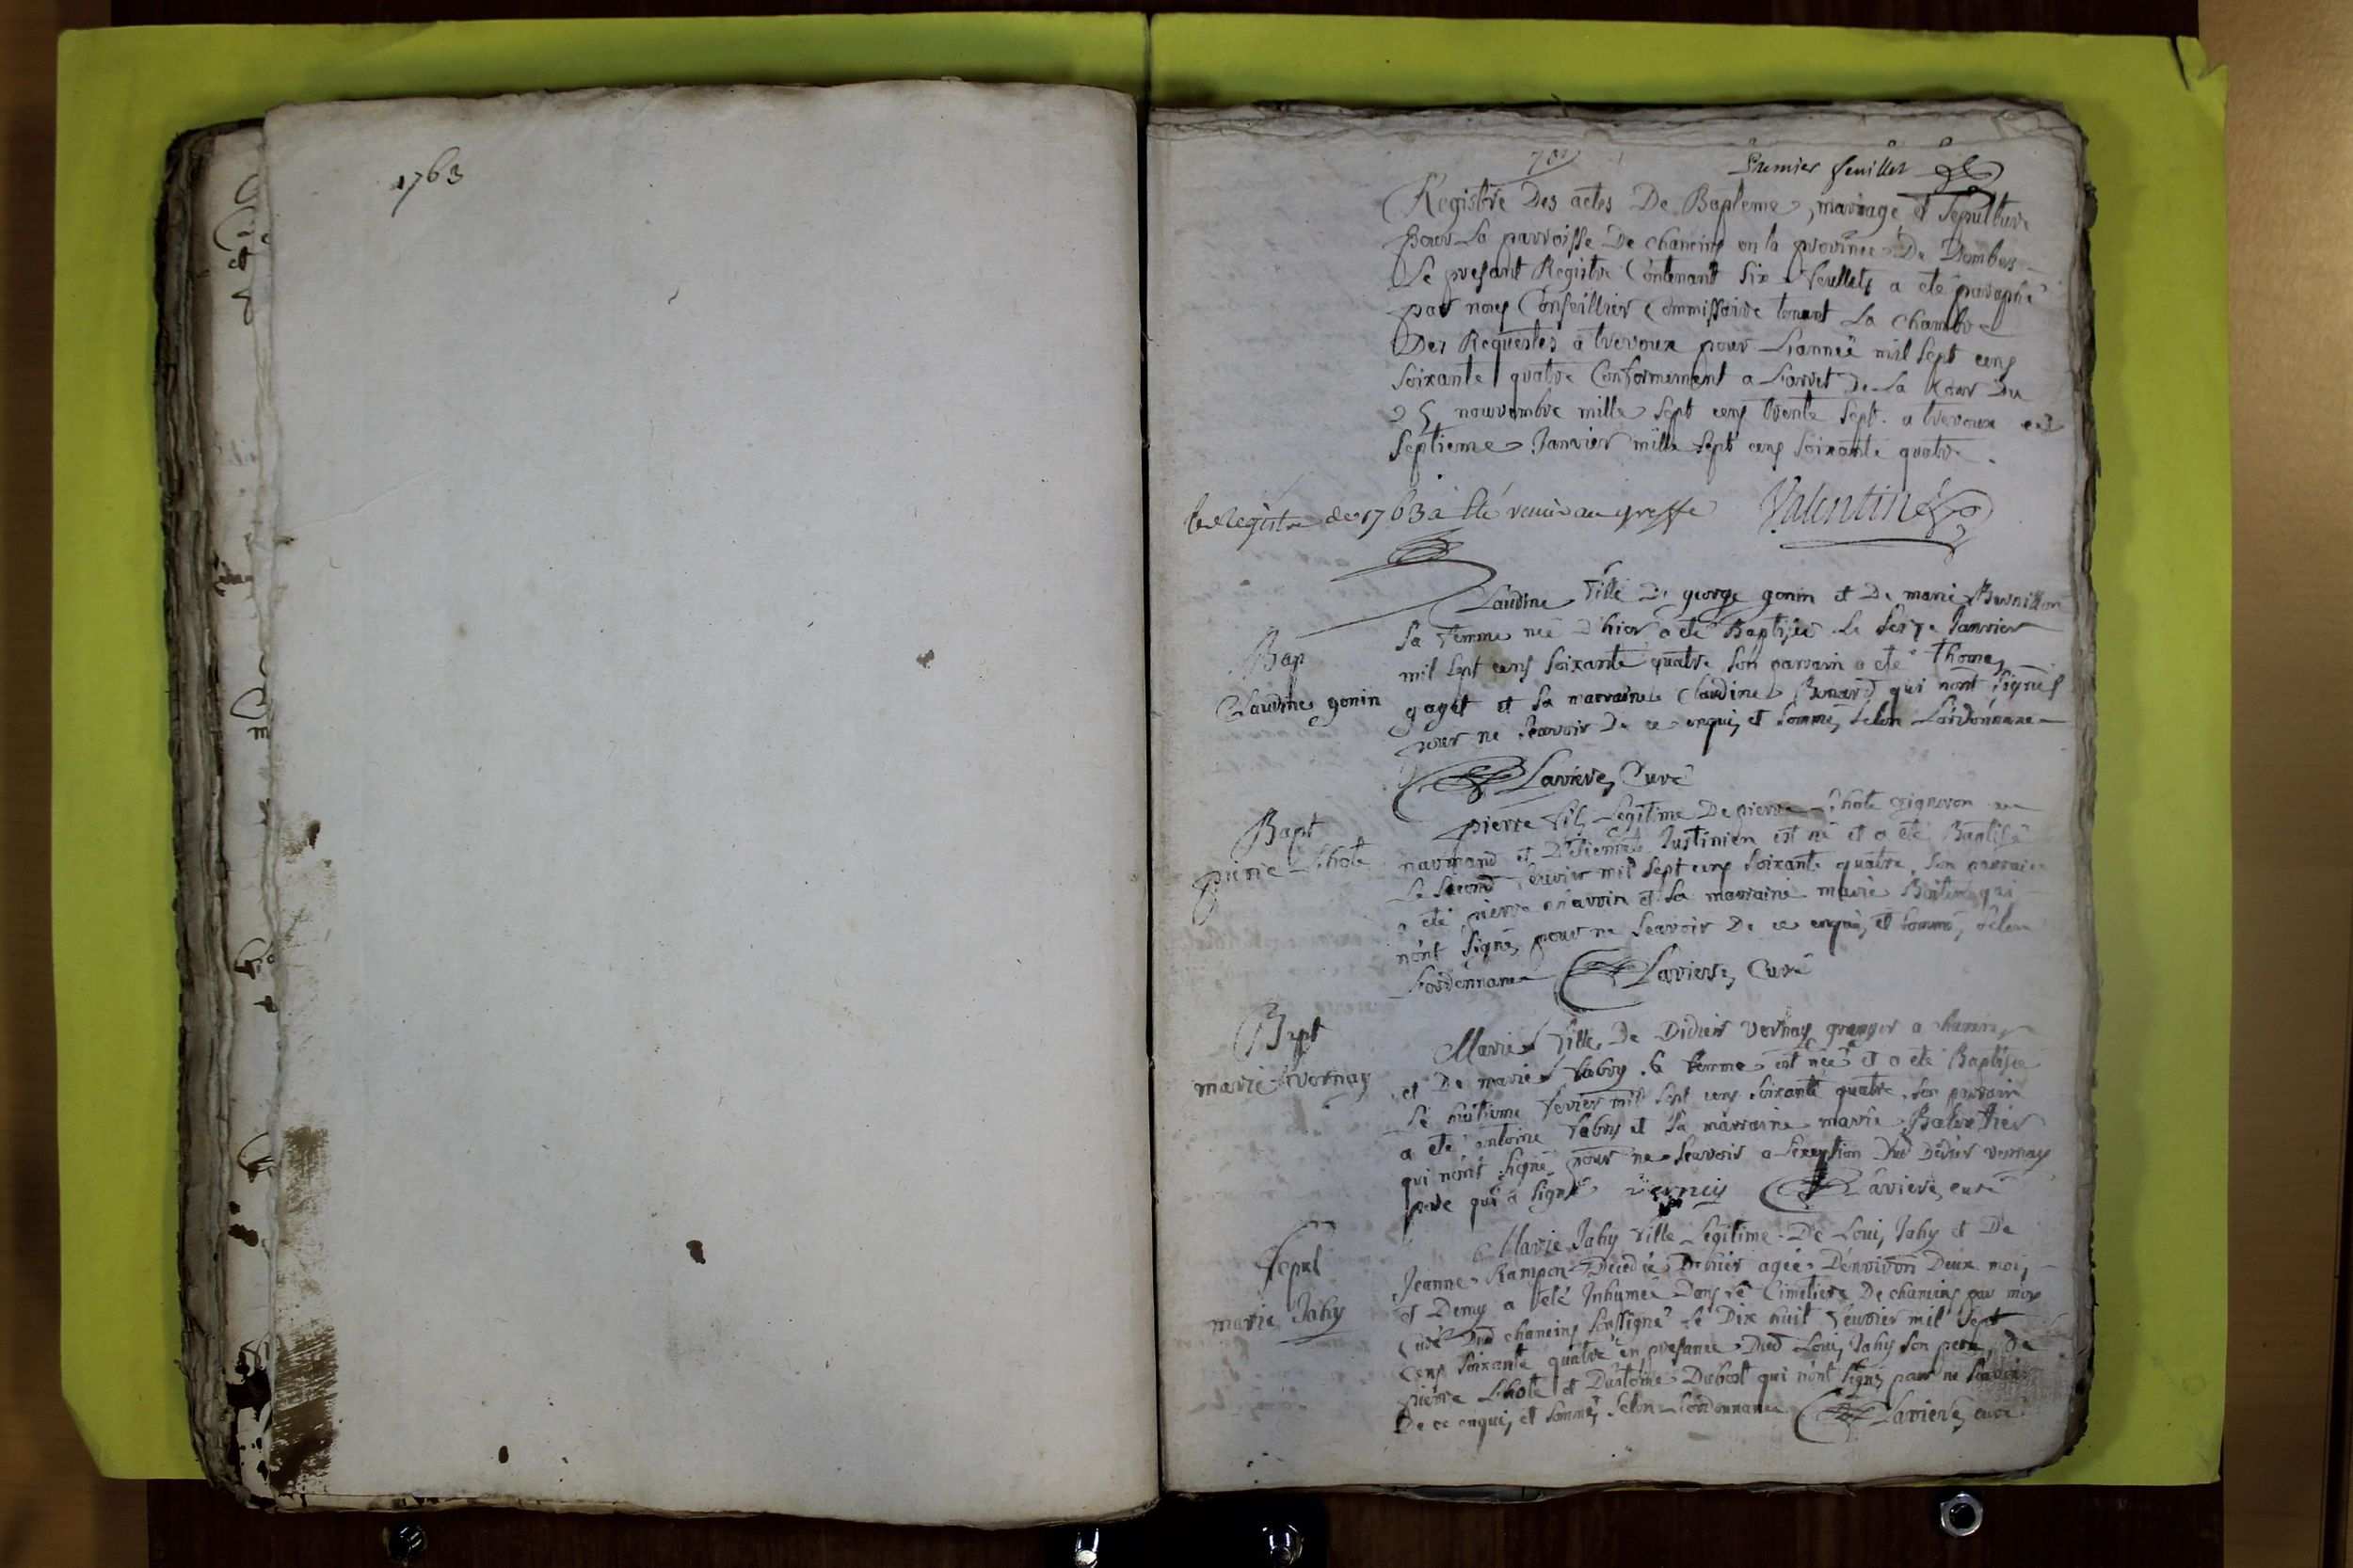 1763
Premier feuillet
Registre Des actes De Bapteme, mariage et Sepulture
pour La parroisse De chaneins en la province De Dombes
Le presant Registre Contenant six feuillets a eté paraphé
par nous Conseillier Commissaire tenant La Chambre
Des Requestes a trevoux pour L'année mil sept cens
soixante quatre Conformement a L'arret De La Cour Du
25 nouvembre mille sept cens trente sept. a trevoux ce
septieme Janvier mille sept cens soixante quatre.
le Registre de 1763 a été remis au greffe Valentin
Bap
Claudine gonin
Claudine fille De george gonin et De marie
sa femme née D'hier a eté Baptisée Le seize Janvier
mil sept cens soixante quatre son parrain a eté Thomas
gaget et sa marraine Claudine Benard qui n'ont signés
pour ne sçavoir De ce enquis et sommés selon L'ordonnance
Laviere, Curé
Bapt
pierre Lhote
pierre fils Legitime De pierre Lhote vigneron
et D'Etiennete Justinien est né et a eté Baptisé
Le second fevrier mil sept cens soixante quatre, son parrain
a eté pierre et sa marraine marie qui
n'ont signé, pour ne sçavoir De ce enquis, et sommés, selon
L'ordonnance Laviere, Curé
Bapt
marie vernay
Marie fille De Didier vernay granger a chaneins
et De marie fabry sa femme est née et a eté Baptisée
Le huitieme fevrier mil sept cens soixante quatre, son parrain
a eté antoine fabry et sa marraine marie
qui n'ont signé pour ne sçavoir a L'exeption Dud Didier vernay
pere qui a signé vernay Laviere, curé
Sepul
marie Jahy
Marie Jahy fille Legitime De Loui, Jahy et De
Jeanne Rampon Decedée D'hier agée D'environ Deux mois,
et Demy a eté Inhumée Dans le Cimetiere De chaneins par moy
Curé Dud chaneins soussigné Le Dix huit fevrier mil sept
cens soixante quatre en presance Dud Loui, Jahy son pere, De
pierre Lhote et D'antoine Dubost qui n'ont signé, pour ne sçavoir
De ce enquis, et sommés, selon L'ordonnance Laviere, curé